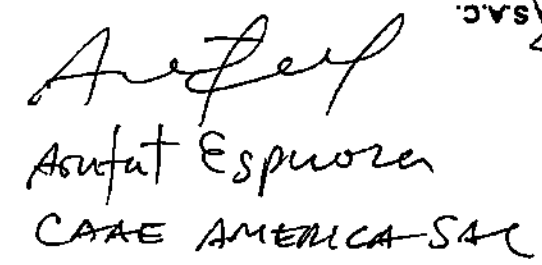 S.A.C.
Arufat Espinoza
CAAE AMERICA SAC